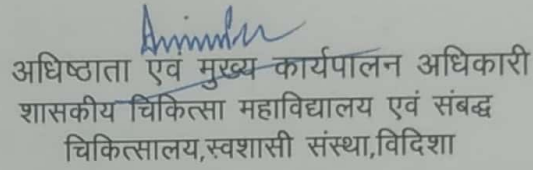 अधिष्ठाता एवं मुख्य कार्यपालन अधिकारी
शासकीय चिकित्सा महाविद्यालय एवं संबद्ध
चिकित्सालय,स्वशासी संस्था,विदिशा